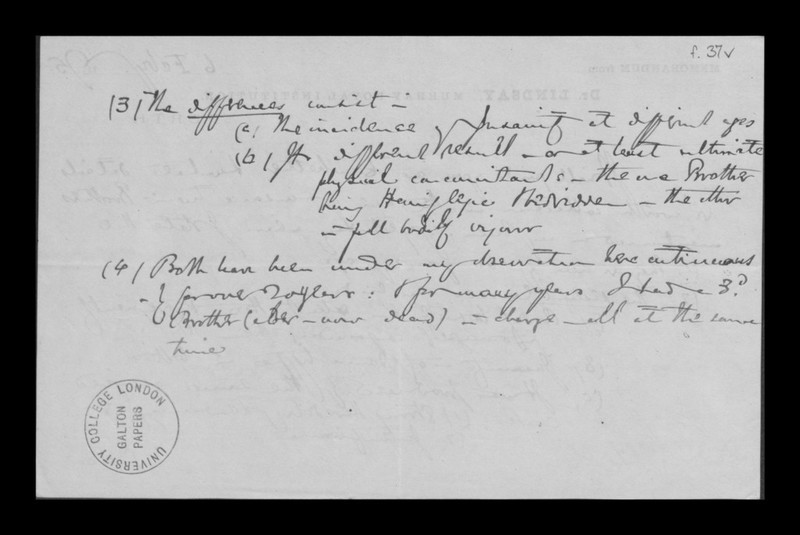 f. 37v
(3) The differences consist -
(a) The incidence of Insanity at different ages
(b) Its different result - or at least ultimate
physical concomitants - the one Brother
being Hemiplegic & Bedridden - the other
in full bodily vigour
(4) Both have been under my observation here continuous
-ly for over 20 years: & for many years I had a 3d.
Brother (elder - now dead) in charge - all at the same
time
UNIVERSITY COLLEGE LONDON
GALTON
PAPERS
6 Feby
MEMORANDUM from
Dr. LINDSAY, MURRAY ROYAL INSTITUTION